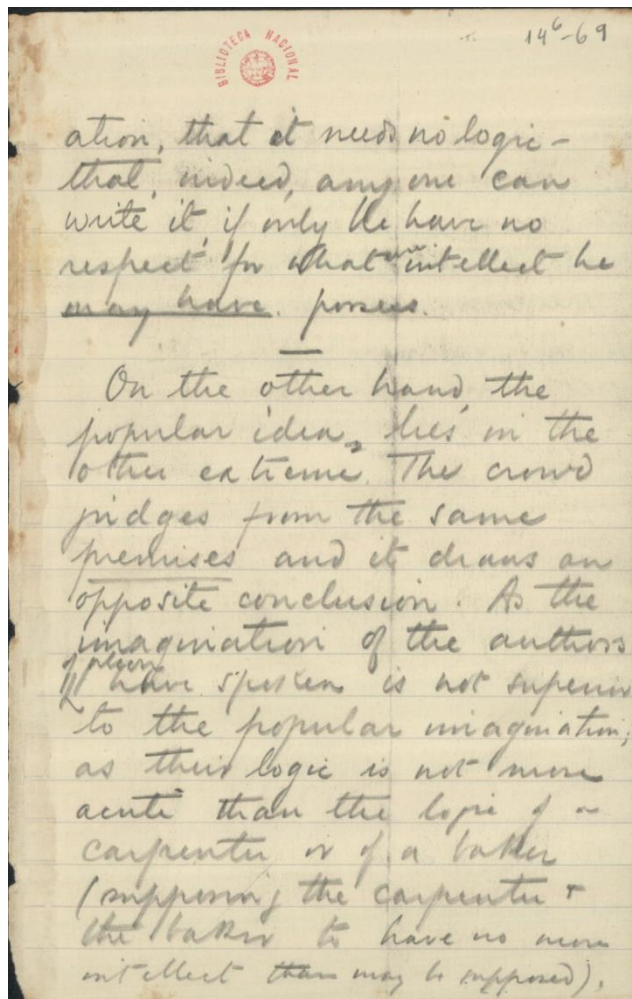 14⁶-69
BIBLIOTECA NACIONAL
ation, that it needs no logic —
that, indeed, anyone can
write it, if only he have no
respect for what intellect he
may have. possess.
On the other hand, the
popular idea, lies in the
other extreme. The crowd
judges from the same
premises and it draws an
opposite conclusion. As the
imagination of the authors
of whom
I have spoken is not superior
to the popular imagination;
as their logic is not more
acute than the logic of a
carpenter or of a baker
(supposing the carpenter &
the baker to have no more
intellect than may be supposed),